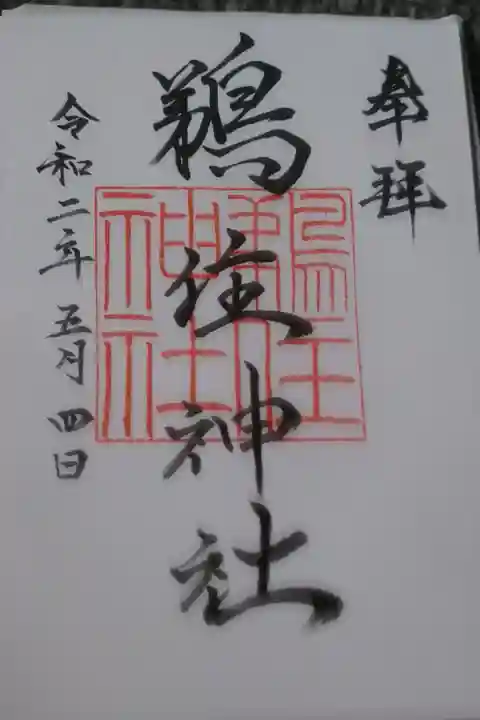 奉拝
鵜住神社
鵜住
神社
令和二年五月四日